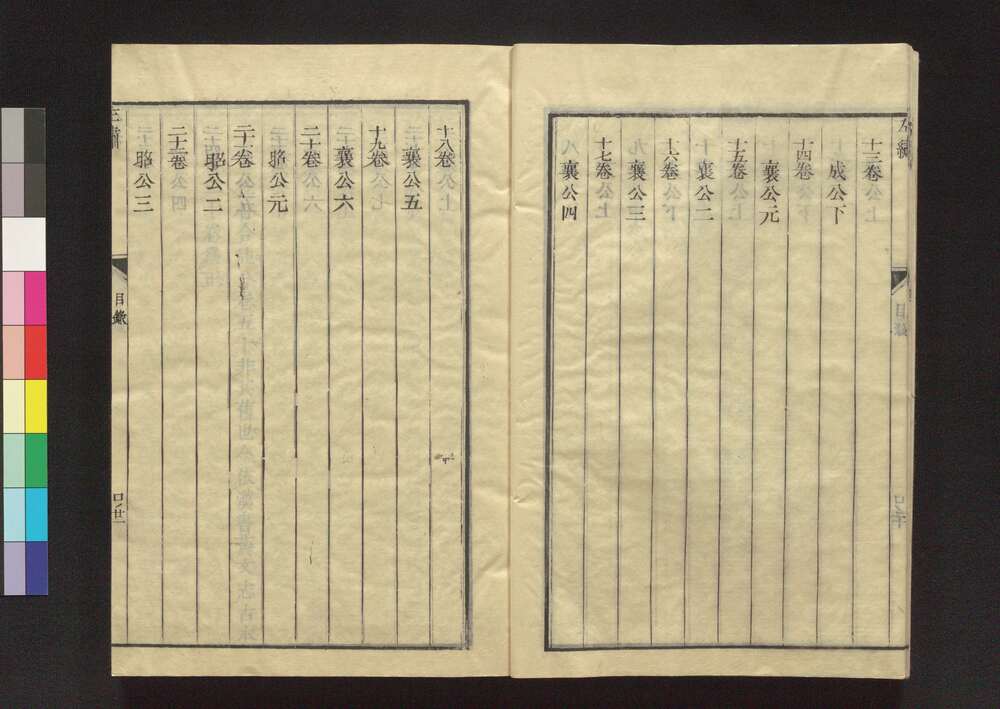 左繡
十三卷
成公下
十四卷
襄公元
十五卷
襄公二
十六卷
襄公三
十七卷
襄公四
目錄
十八卷
襄公五
十九卷
襄公六
二十卷
昭公元
二十一卷
昭公二
二十二卷
昭公三
目錄
口ノ廿一